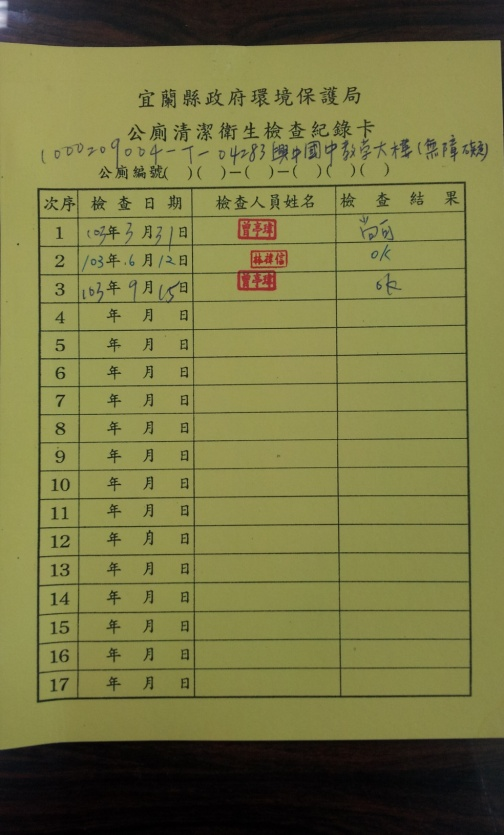 宜蘭縣政府環境保護局
公廁清潔衛生檢查紀錄卡
1000209004-T-04283興中國中教學大樓(無障礙)
公廁編號( )( )-( )-( )( )( )
次序 檢查日期 檢查人員姓名 檢查結果
1 103年3月31日 曾亭瑋 尚可
2 103年6月12日 OK
3 103年9月15日 曾亭瑋 ok
4 年 月 日
5 年 月 日
6 年 月 日
7 年 月 日
8 年 月 日
9 年 月 日
10 年 月 日
11 年 月 日
12 年 月 日
13 年 月 日
14 年 月 日
15 年 月 日
16 年 月 日
17 年 月 日